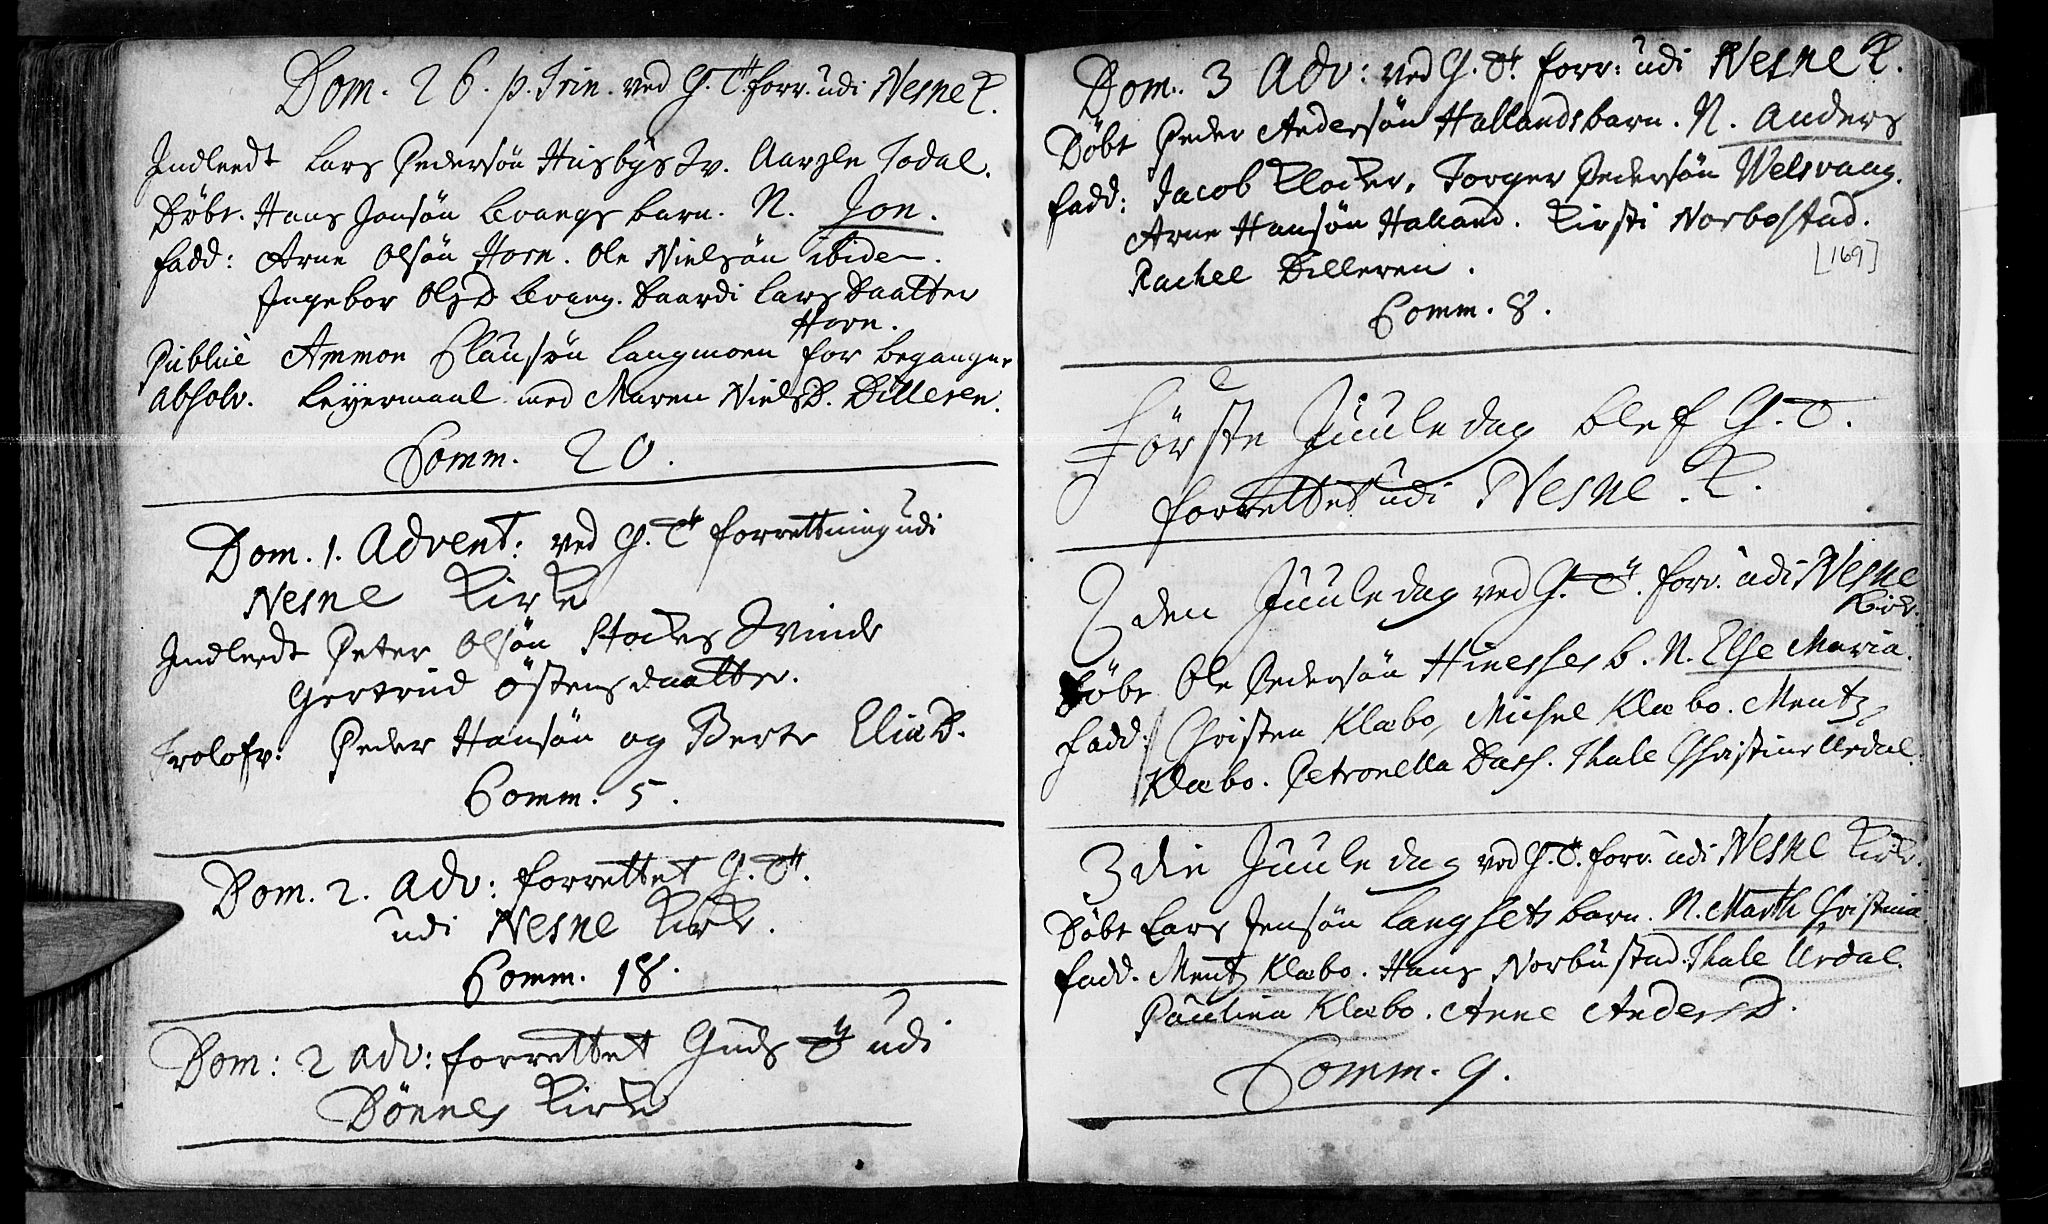 Dom. 26. p. Trin. ved G. T. forr. udi Nesne K.
Indleedt Lars Pedersøn Husbys Qv. Todal.
Døbt. Hans Jonsøn Qvangs barn. N. Jon.
Fadd: Arne Olsøn Horn. Ole Nielsøn ibidem.
Ingebor Ols D. Qvang. Baardi Lars Daatter
Horn.
Publicè Ammon Clausøn Langmoen for begangne
absolv. Leyermaal med Maren Niels D. Dilleren.
Comm. 20.
Dom. 1. Advent: ved G. T. forrettning udi
Nesne Kirke
Indleedt Peter Olsøn Stockes Qvinde
Gertrud Østensdaatter.
Trolofv: Peder Hansøn og Berte Elia D.
Comm. 5.
Dom. 2. Adv: forrettet G. T.
udi Nesne Kirke.
Comm. 18.
Dom: 2 adv: forrettet Guds T. udi
Dønnes Kirke
Dom. 3 Adv: ved G. T. forr: udi Nesne K.
Døbt Peder Andersøn Hallands barn. N. Anders
Fadd: Jacob Klocker. Torger Pedersøn Welsvang.
Arne Hansøn Halland. Kirsti Norbostad.
[169]
Rachel Dilleren.
Comm. 8.
Første Juuledag blef G. T.
forrettet udi Nesne K.
2den Juuledag ved G. T. forr. udi Nesne
Kirk.
Døbt Ole Pedersøn b. N. Else Maria.
Fadd: Christen Klæbo, Michel Klæbo. Mentz
Klæbo. Petronella Dass. Thale Christine Urdal.
3die Juuledag ved G. T. forr. udi Nesne Kirk.
Døbt Lars Jensøn Langsets barn. N. Marth Christina
Fadd. Mentz Klæbo. Hans Norbustad. Thale Urdal.
Paulina Klæbo. Anne Anders D.
Comm. 9.